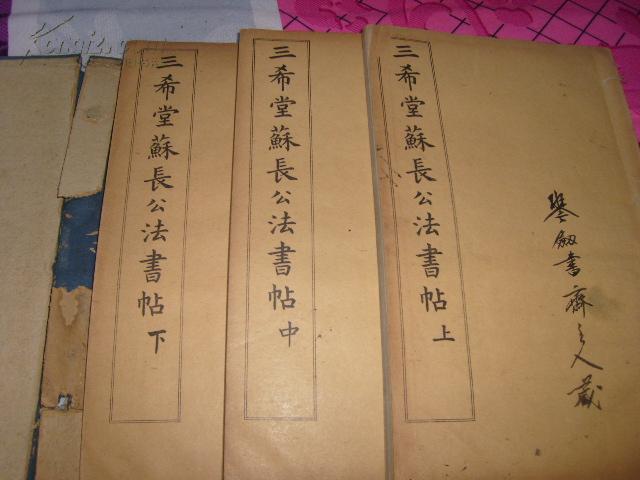 琴劍書齋主人藏
三希堂蘇長公法書帖上
三希堂蘇長公法書帖中
三希堂蘇長公法書帖下